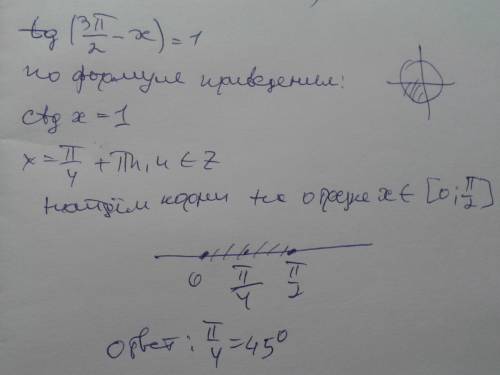 tg (3π/2 - x) = 1
по формуле приведения:
ctg x = 1
x = π/4 + πn, n ∈ Z
найдём корни на отрезке x ∈ [0; π/2]
0 π/4 π/2
ответ: π/4 = 45°